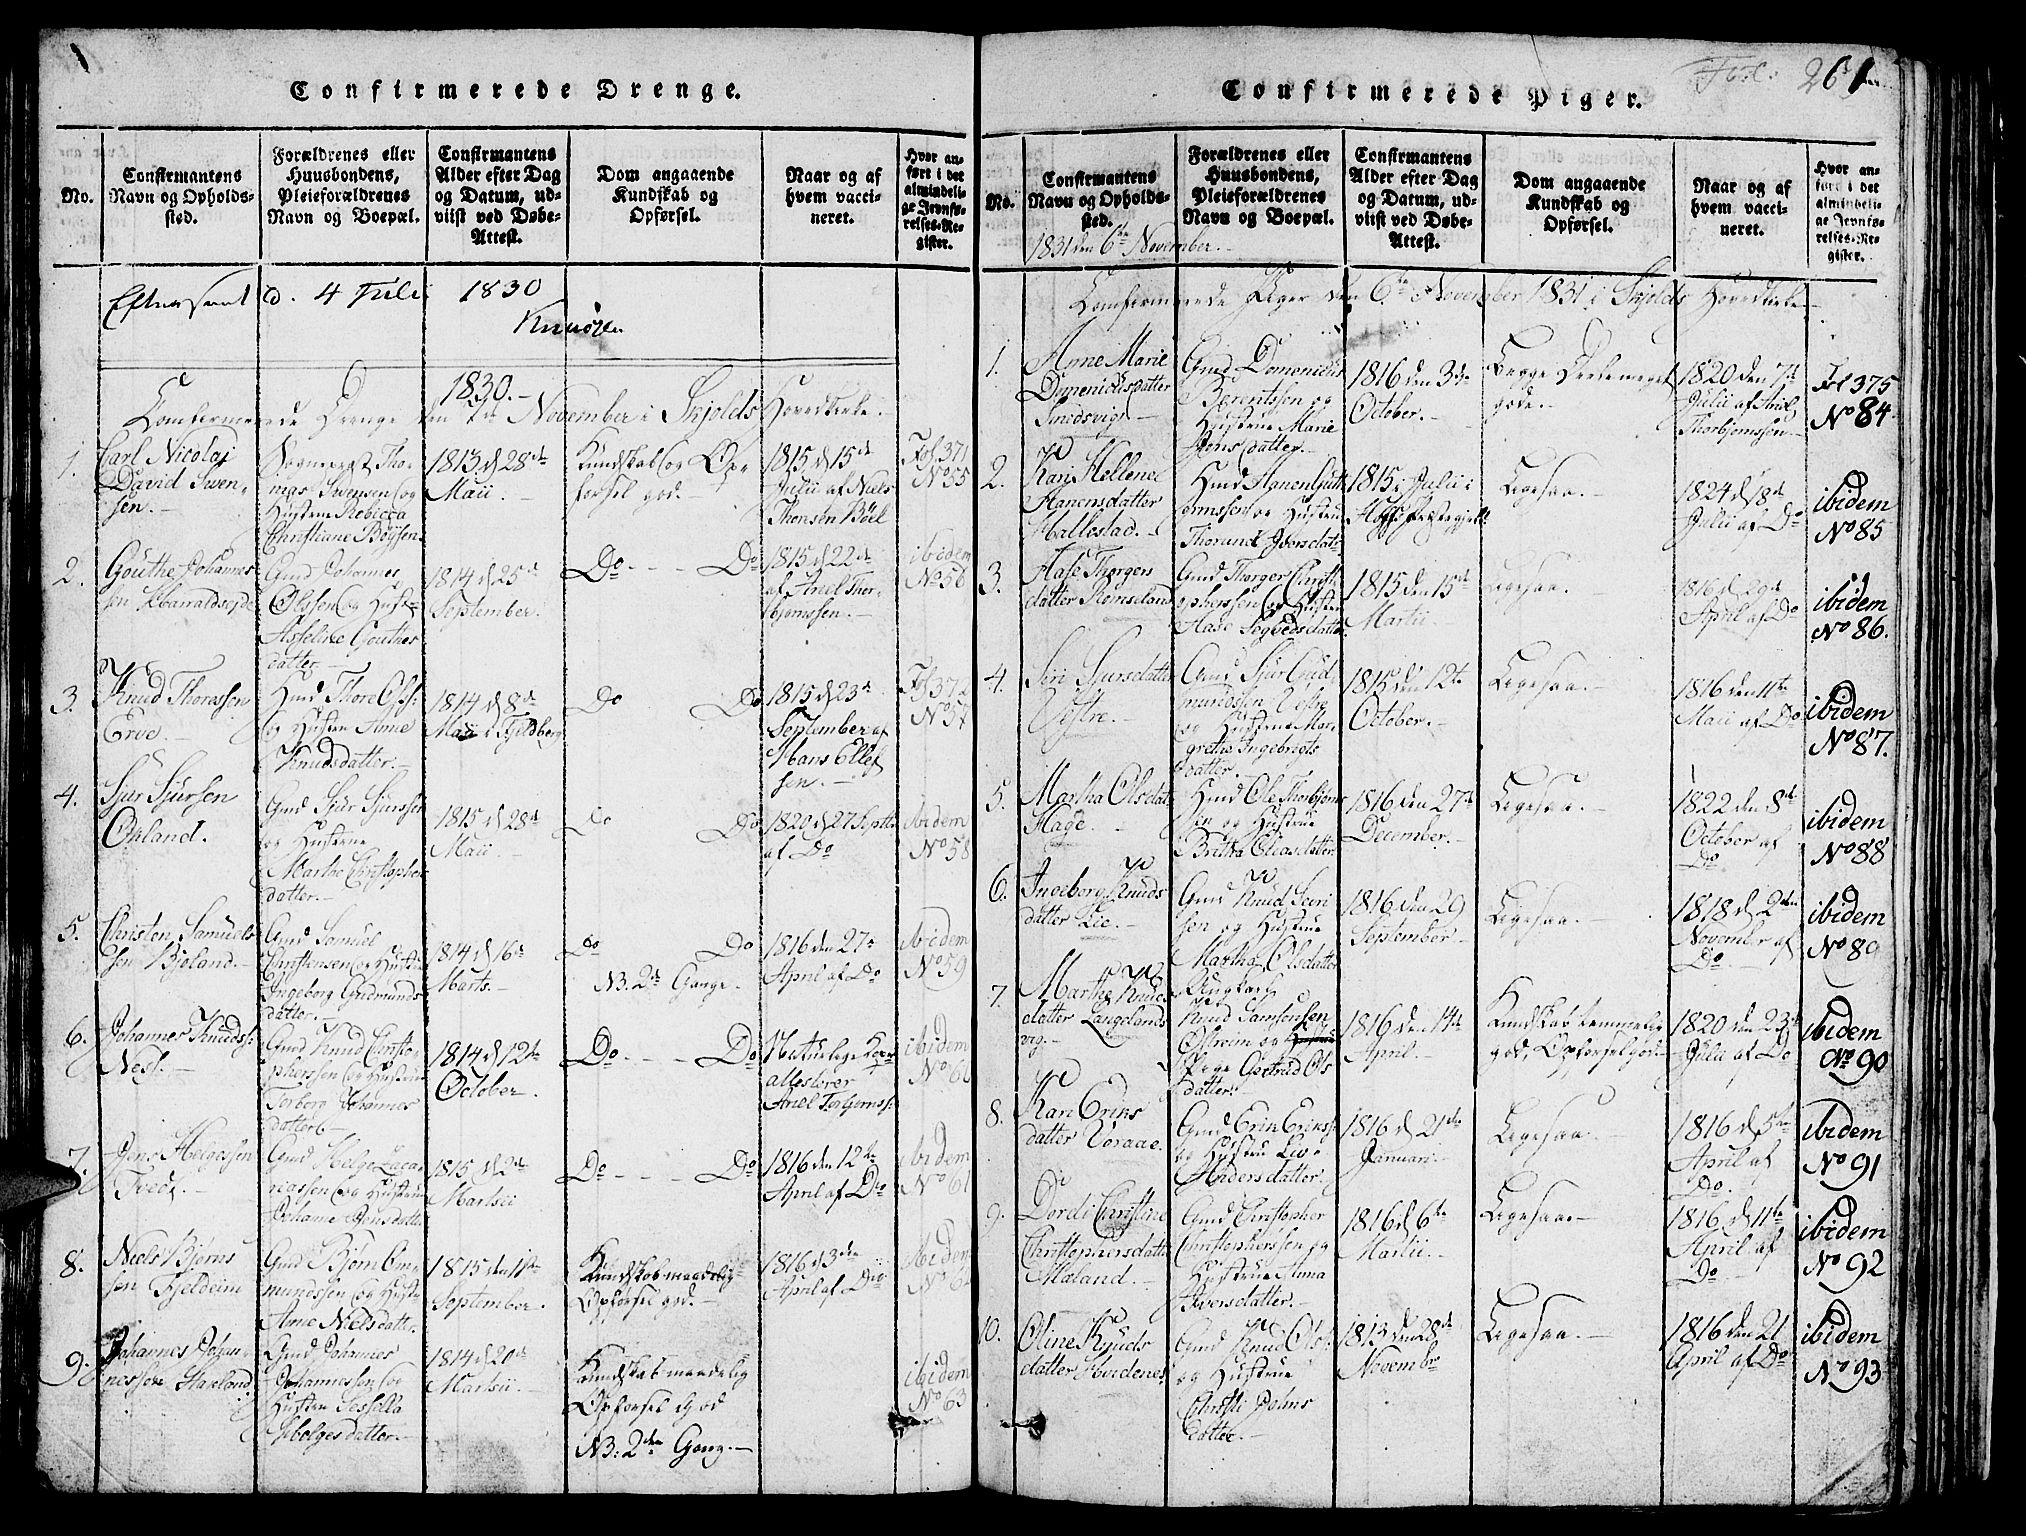 Confirmerede Drenge.
No.
Confirmantens
Navn og Opholds-
sted.
Forældrenes eller
Huusbondens,
Pleieforældrenes
Navn og Boepæl.
Confirmantens
Alder efter Dag
og Datum, ud-
viist ved Døbe-
Attest.
Dom angaaende
Kundskab og
Opførsel.
Naar og af
hvem vacci-
neret.
Hvor an-
ført i det
almindeli-
ge Jevnfø-
relses-Re-
gister.
d. 4 Juli 1830
1830.
Confirmerede Drenge den 7de November i Skjolds Hovedkirke.
1.
Carl Nicolai
David Swen-
sen.
Sogneprest Tho-
mas Swensen og
Hustrue Rebecca
Christiane Böysen
1813 d 28de
Maii.
Kundskab og Op-
førsel god.
1815 d 15d
Julii af Niels
Thonsen Böel
Fol 371
No 55
2.
Gouthe Johannes
sen Haraldseide
Gmd Johannes
Olssen og Hust
Asseline Gouthes
datter.
1814 d 25d
September.
Do - - - Do
1815 d 22d
af Ariel Thor-
bjørnssen.
ibidem
No 56
3.
Knud Thoressen
Erve.
Hmd Thore Olss:
og Hustru Anne
Knudsdatter.
1814 d 8de
Maii i Fjeldberg
Do Do
1815 d 23d
September af
Hans Ellef
sen.
Fol 372
No 57
4.
Sjur Sjursen
Opland.
Gmd Sjur Sjurssen
og Hustrue
Marthe Christopher
datter.
1815 d 28de
Maii.
Do Do
1820 d 27 Septb
af Do
ibidem
No 58
5.
Christen Samuels
sen Bjoland.
Gmd Samuel
Christensen og Hustru
Ingeborg Gudmunds
datter.
1814 d 16d
Marts.
Do Do
NB. 2de Gange.
1816 den 27de
April af Do
ibidem
No 59
6.
Johannes Knudss:
Nes.
Gmd Knud Christo-
phersen og Hustrue
Torborg Johannes
datter
1814 d 12te
October.
Do - - - Do
Naturlige Kop
attesterer
Ariel Torbjornss:
ibidem
No 60
7.
Jens Helgessen
Tvedt.
Gmd Helge Zaca-
riassen og Hustrue
Johanne Jensdatter
1815 d 2de
Martsii
Do - - - Do
1816 den 12te
April af Do
ibidem
No 61
8.
Niels Bjørns
sen Fjeldeim
Gmd Bjørn Om-
mundssen og Hustr
Anne Nielsdatter.
1815 den 1ste
September.
Kundskab maadelig
Opførsel god.
1816 d 3den
April af Do
ibidem
No 62
9.
Johannes Johan-
nessen Haaland
Gmd Johannes
Johannessen og
Hustru Sessella
Helgesdatter.
1814 d 20de
Martsii.
Kundskab maadelig
Opførsel god
NB: 2den Gang.
ibidem
No 63
Confirmerede Piger.
Fol: 261
No.
Confirmantens
Navn og Opholds-
sted.
Forældrenes eller
Huusbondens,
Pleieforældrenes
Navn og Boepæl.
Confirmantens
Alder efter Dag
og Datum, ud-
viist ved Døbe-
Attest.
Dom angaaende
Kundskab og
Opførsel.
Naar og af
hvem vacci-
neret.
Hvor an-
ført i det
almindeli-
ge Jevnfø-
relses-Re-
gister.
1831 den 6te November.
Confirmerede Piger den 6te November 1831 i Skjolds Hovedkirke
1.
Anne Marie
Domenicusdatter
Smedsvig
Gmd Domenicus
Berentssen og
Hustrue Marie
Jonsdatter.
1816 den 3die
October.
Begge Dele meget
gode.
1820 den 7de
Julii af Ariel
Thorbjørnssen
Fol 375
No 84
2.
Kari Hellene
Hanensdatter
Hallestad.
1815 i Julii i
Ligesaa.
1824 d 8d
Julii af Do
ibidem
No 85
3.
Aase Thorgers
datter Romseland
Gmd Thorger Christ-
opherssen og Hustru
Aase Sogvedsdatter.
1815 den 15de
Martii.
Ligesaa.
1816 d 29de
April af Do
ibidem
No 86.
4.
Siri Sjursdatter
Vestre.
Gmd Sjur Gud-
mundssen Vestre
og Hustrue Mar-
grethe Ingebrigts
datter.
1815 den 12te
October.
Ligesaa.
1816 den 11te
Maii af Do
ibidem
No 87.
5.
Martha Olsdatt
Hage.
Hmd Ole Thorbjørns
sen og Hustrue
Britha Eliasdatter.
1816 den 27de
December.
Ligesaa.
1822 den 8de
October af
Do
ibidem
No 88
6.
Ingeborg Knuds
datter Lie.
Gmd Knud Seeri
sen og Hustrue
Martha Olsdatter
1816 den 29
September
Ligesaa.
1818 d 2den
November af
Do
ibidem
No 89
7.
Marthe Knuds
datter Langelands
vig.
Ungkarl
Knud Samsonsen
Østreim og
Pige Gertrud Ols
datter.
1816 den 14de
April.
Kundskab temmelig
god, Opførsel god.
1820 den 23de
Julii af Do
ibidem
No 90
8.
Kari Eriks
datter Vaage.
Gmd Erik Erikss:
og Hustrue Liv
Andersdatter.
1816 d 21de
Januari.
Ligesaa.
1816 d 5te
April af
Do.
ibidem
No 91
9.
Dordi Christine
Christophersdatter
Maland.
Gmd Christopher
Christopherssen og
Hustrue Anna
Iversdatter.
1816 d 6te
Martii.
Ligesaa.
1816 d 11te
April af
Do
ibidem
No 92
10.
Oline Knuds
datter Hvidenes
Gmd Knud Ols:
og Hustrue
Christi Johns
datter.
1815 den 28de
Novembr
Ligesaa.
1816 den 21
April af Do
ibidem
No 93